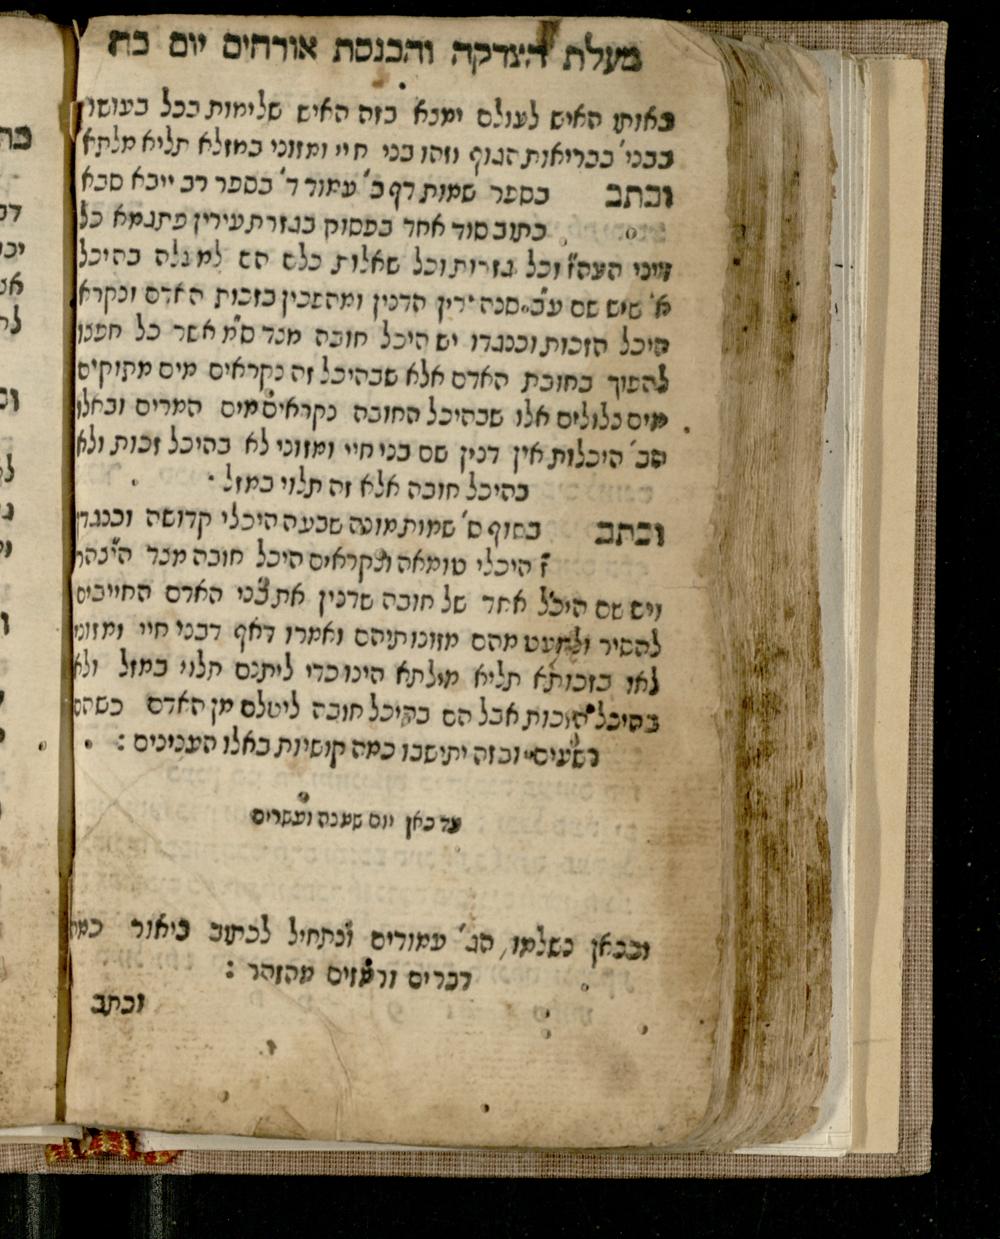 מעלת הצדקה והכנסת אורחים יום כח
באותו האיש לעולם ימנא בזה האיש שלימות בכל בעושר
בבני' בבריאות הגוף וזהו בני חיי ומזוני במזלא תליא מלתא
וכתב בספר שמות דף ב' עמוד ד' בספר רב ייבא סבא
כתוב סוד אחד בפסוק בגזרת עירין פתגמא כל
דיני העה"ז וכל גזרות וכל שאלות כלם הם למעלה בהיכל
א' שיש שם ע"ב סנהדרין הדנין ומהפכין בזכות האדם ונקרא
היכל הזכות וכנגדו יש היכל חובה מצד ס"מ אשר כל חפצו
להפוך בחובת האדם אלא שבהיכל זה נקראים מים מתוקים
מים כלולים אלו שבהיכל החובה נקראים מים המרים ובאלו
הב' היכלות אין דנין שם בני חיי ומזוני לא בהיכל זכות ולא
בהיכל חובה אלא זה תלוי במזל
וכתב בסוף ס' שמות מונה שבעה היכלי קדושה וכנגדן
ז' היכלי טומאה ונקראים היכל חובה מצד היצהר
ויש שם היכל אחד של חובה שדנין את בני האדם החייבים
להסיר ולמעט מהם מזונותיהם ואמרו דאף דבני חיי ומזוני
לאו בזכותא תליא מילתא היינו כדי ליתנם תלוי במזל ולא
בהיכל הזכות אבל הם בהיכל חובה ליטלם מן האדם כשהם
רשעים ובזה יתישבו כמה קושיות באלו הענינים :
עד כאן יום שמנה ועשרים
ובכאן נשלמו הג' עמודים ונתחיל לכתוב ביאור כמה
דברים ורמזים מהזהר :
וכתב